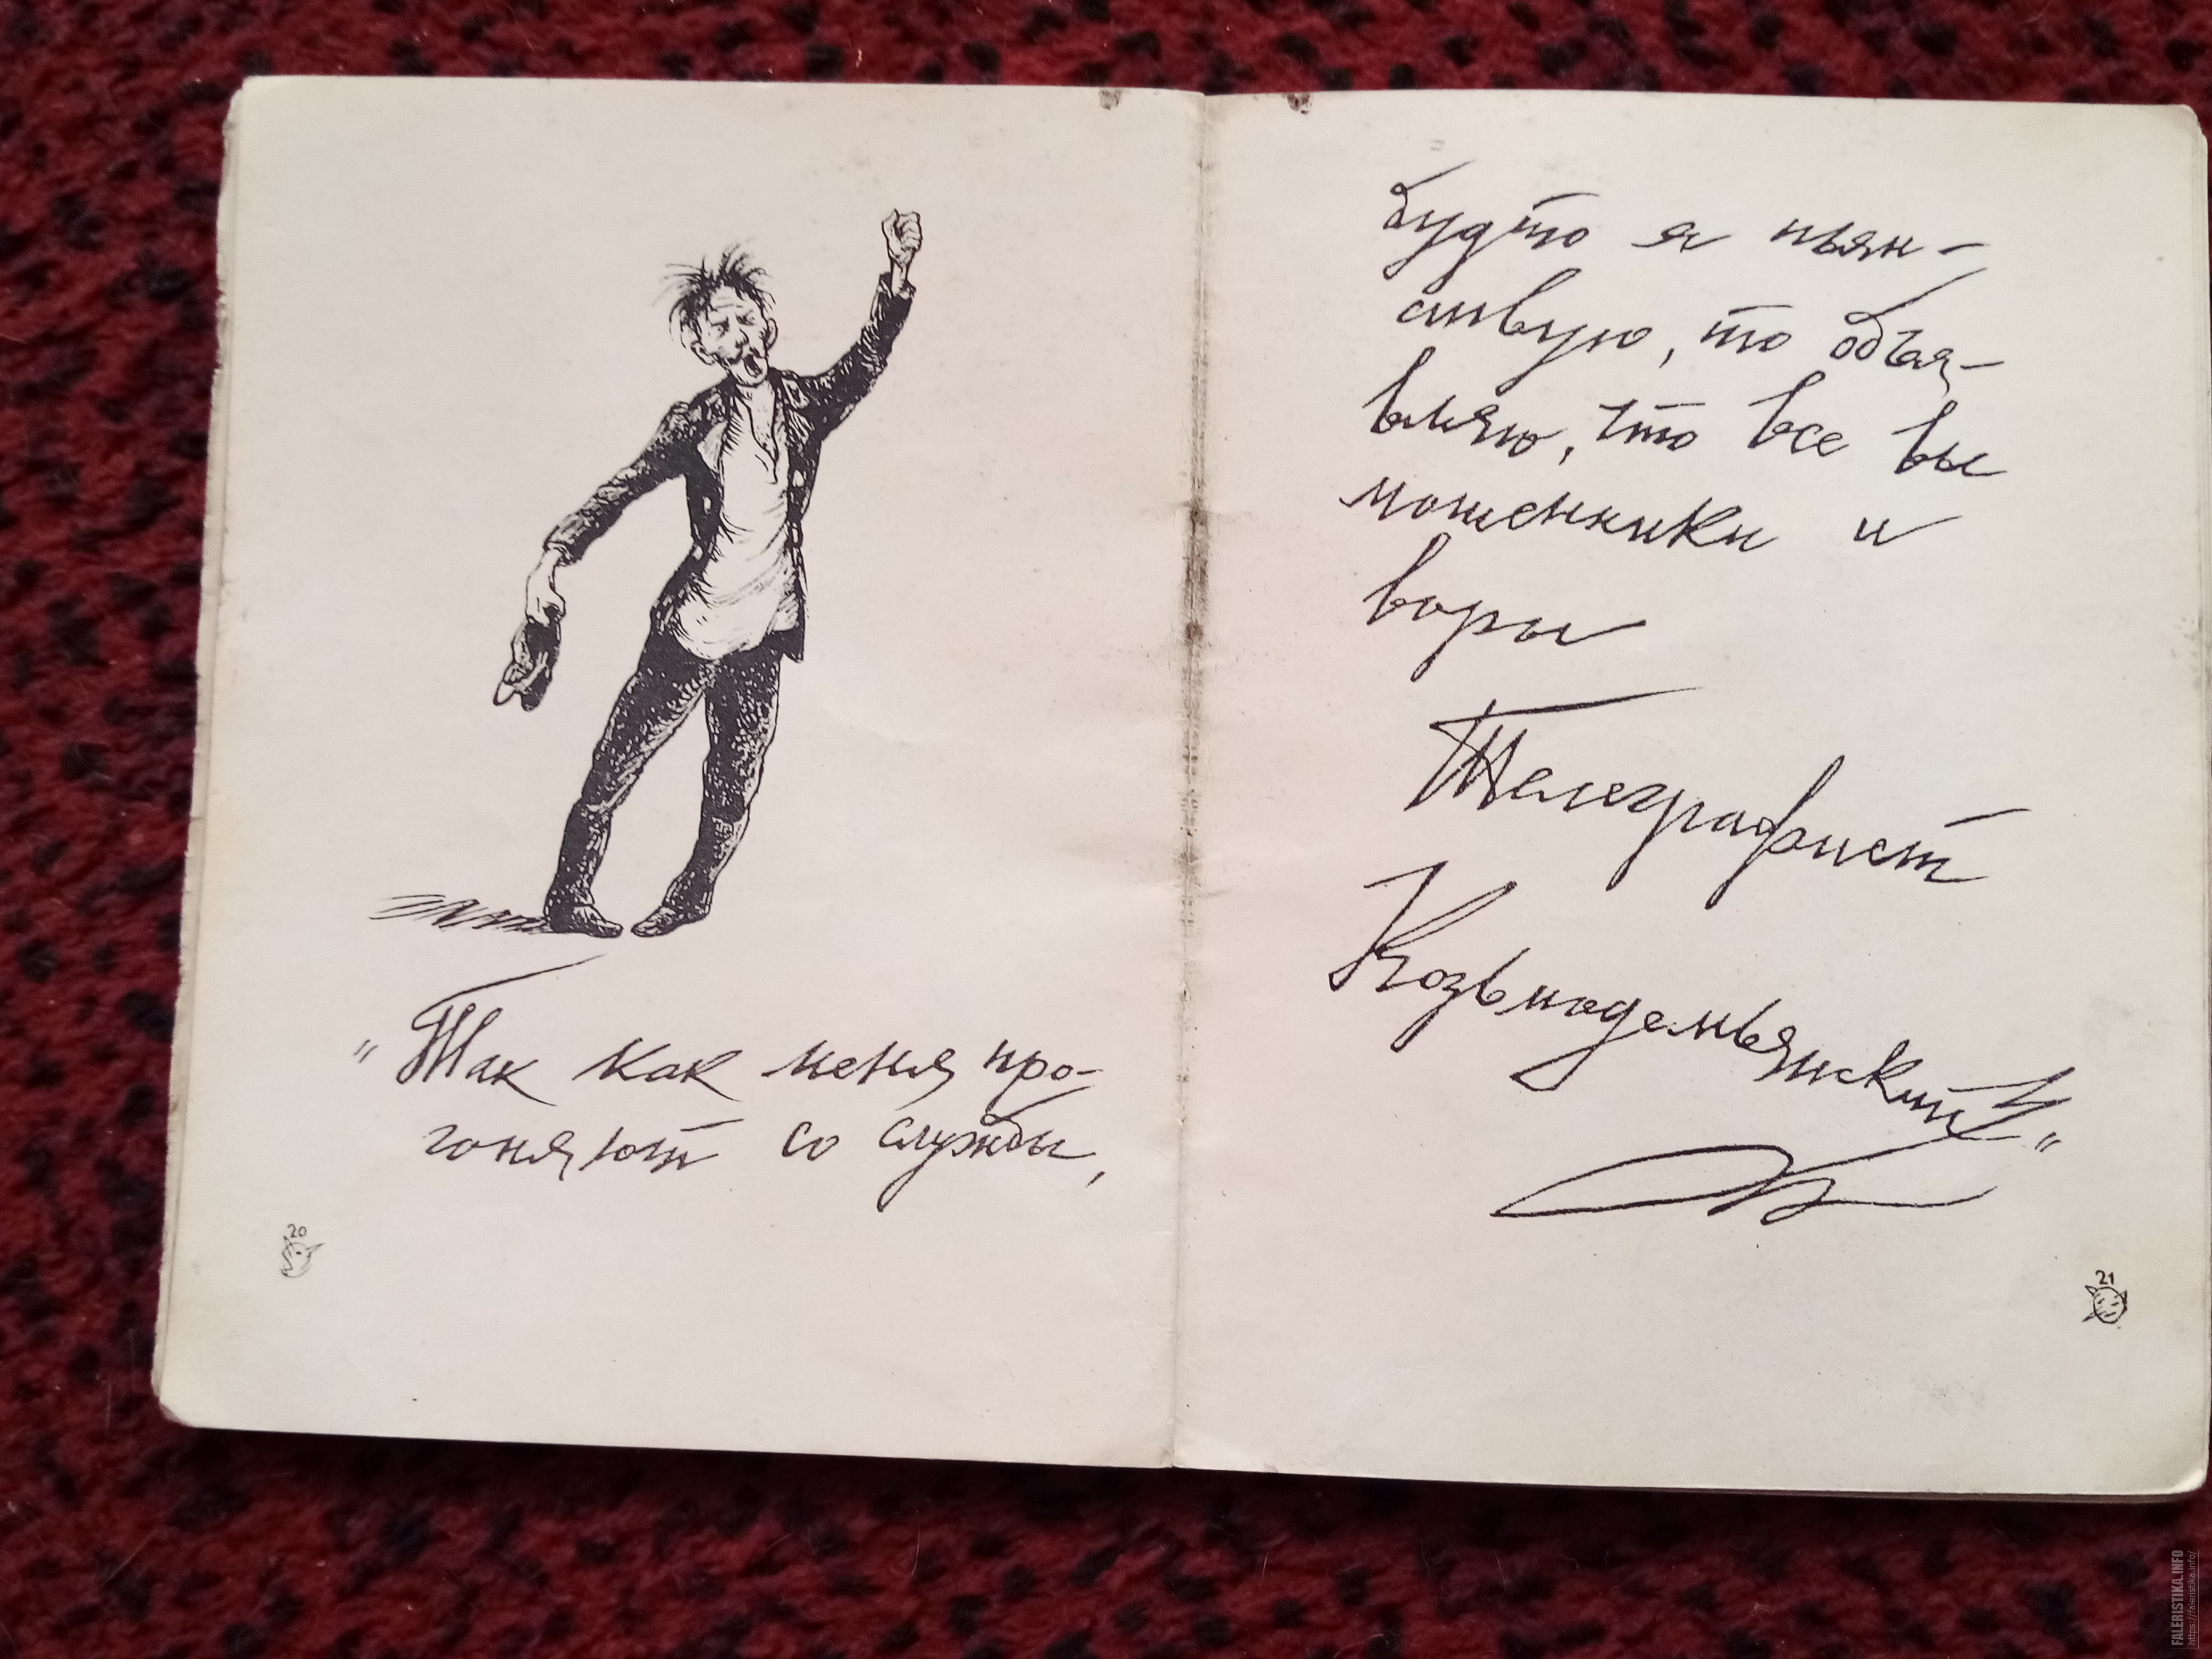 "Так как меня про-
гоняют со службы,
20
будто я пьян-
ствую, то объя-
вляю, что все вы
мошенники и
воры
Телеграфист
Козьмодемьянский"
21
FALERISTIKA.INFO
https://faleristika.info/